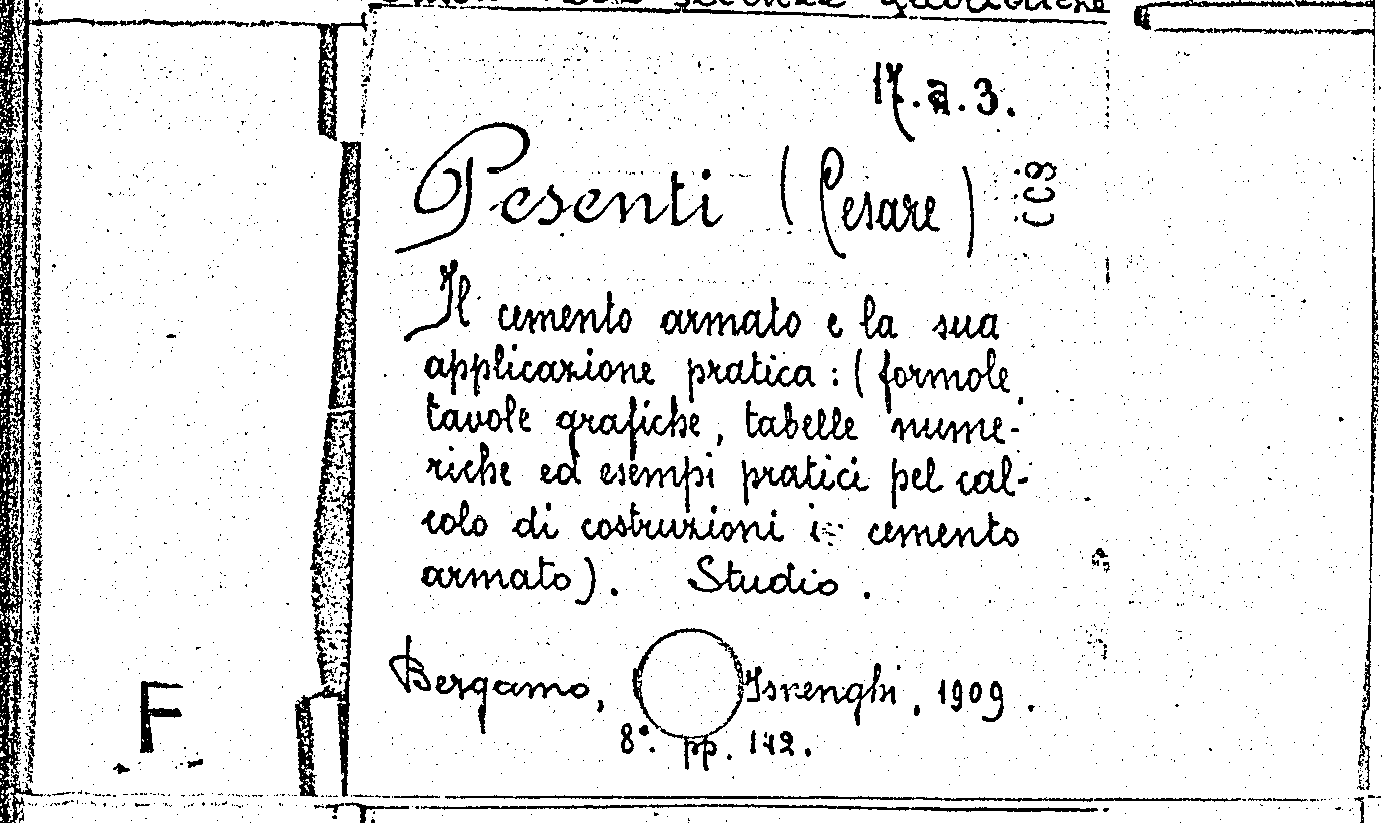 17.a.3.
Pesenti (Cesare)
Il cemento armato e la sua
applicazione pratica: (formole,
tavole grafiche, tabelle nume-
riche ed esempi pratici pel cal-
colo di costruzioni in cemento
armato). Studio.
Bergamo, Isnenghi, 1909.
8°. pp. 142.
F